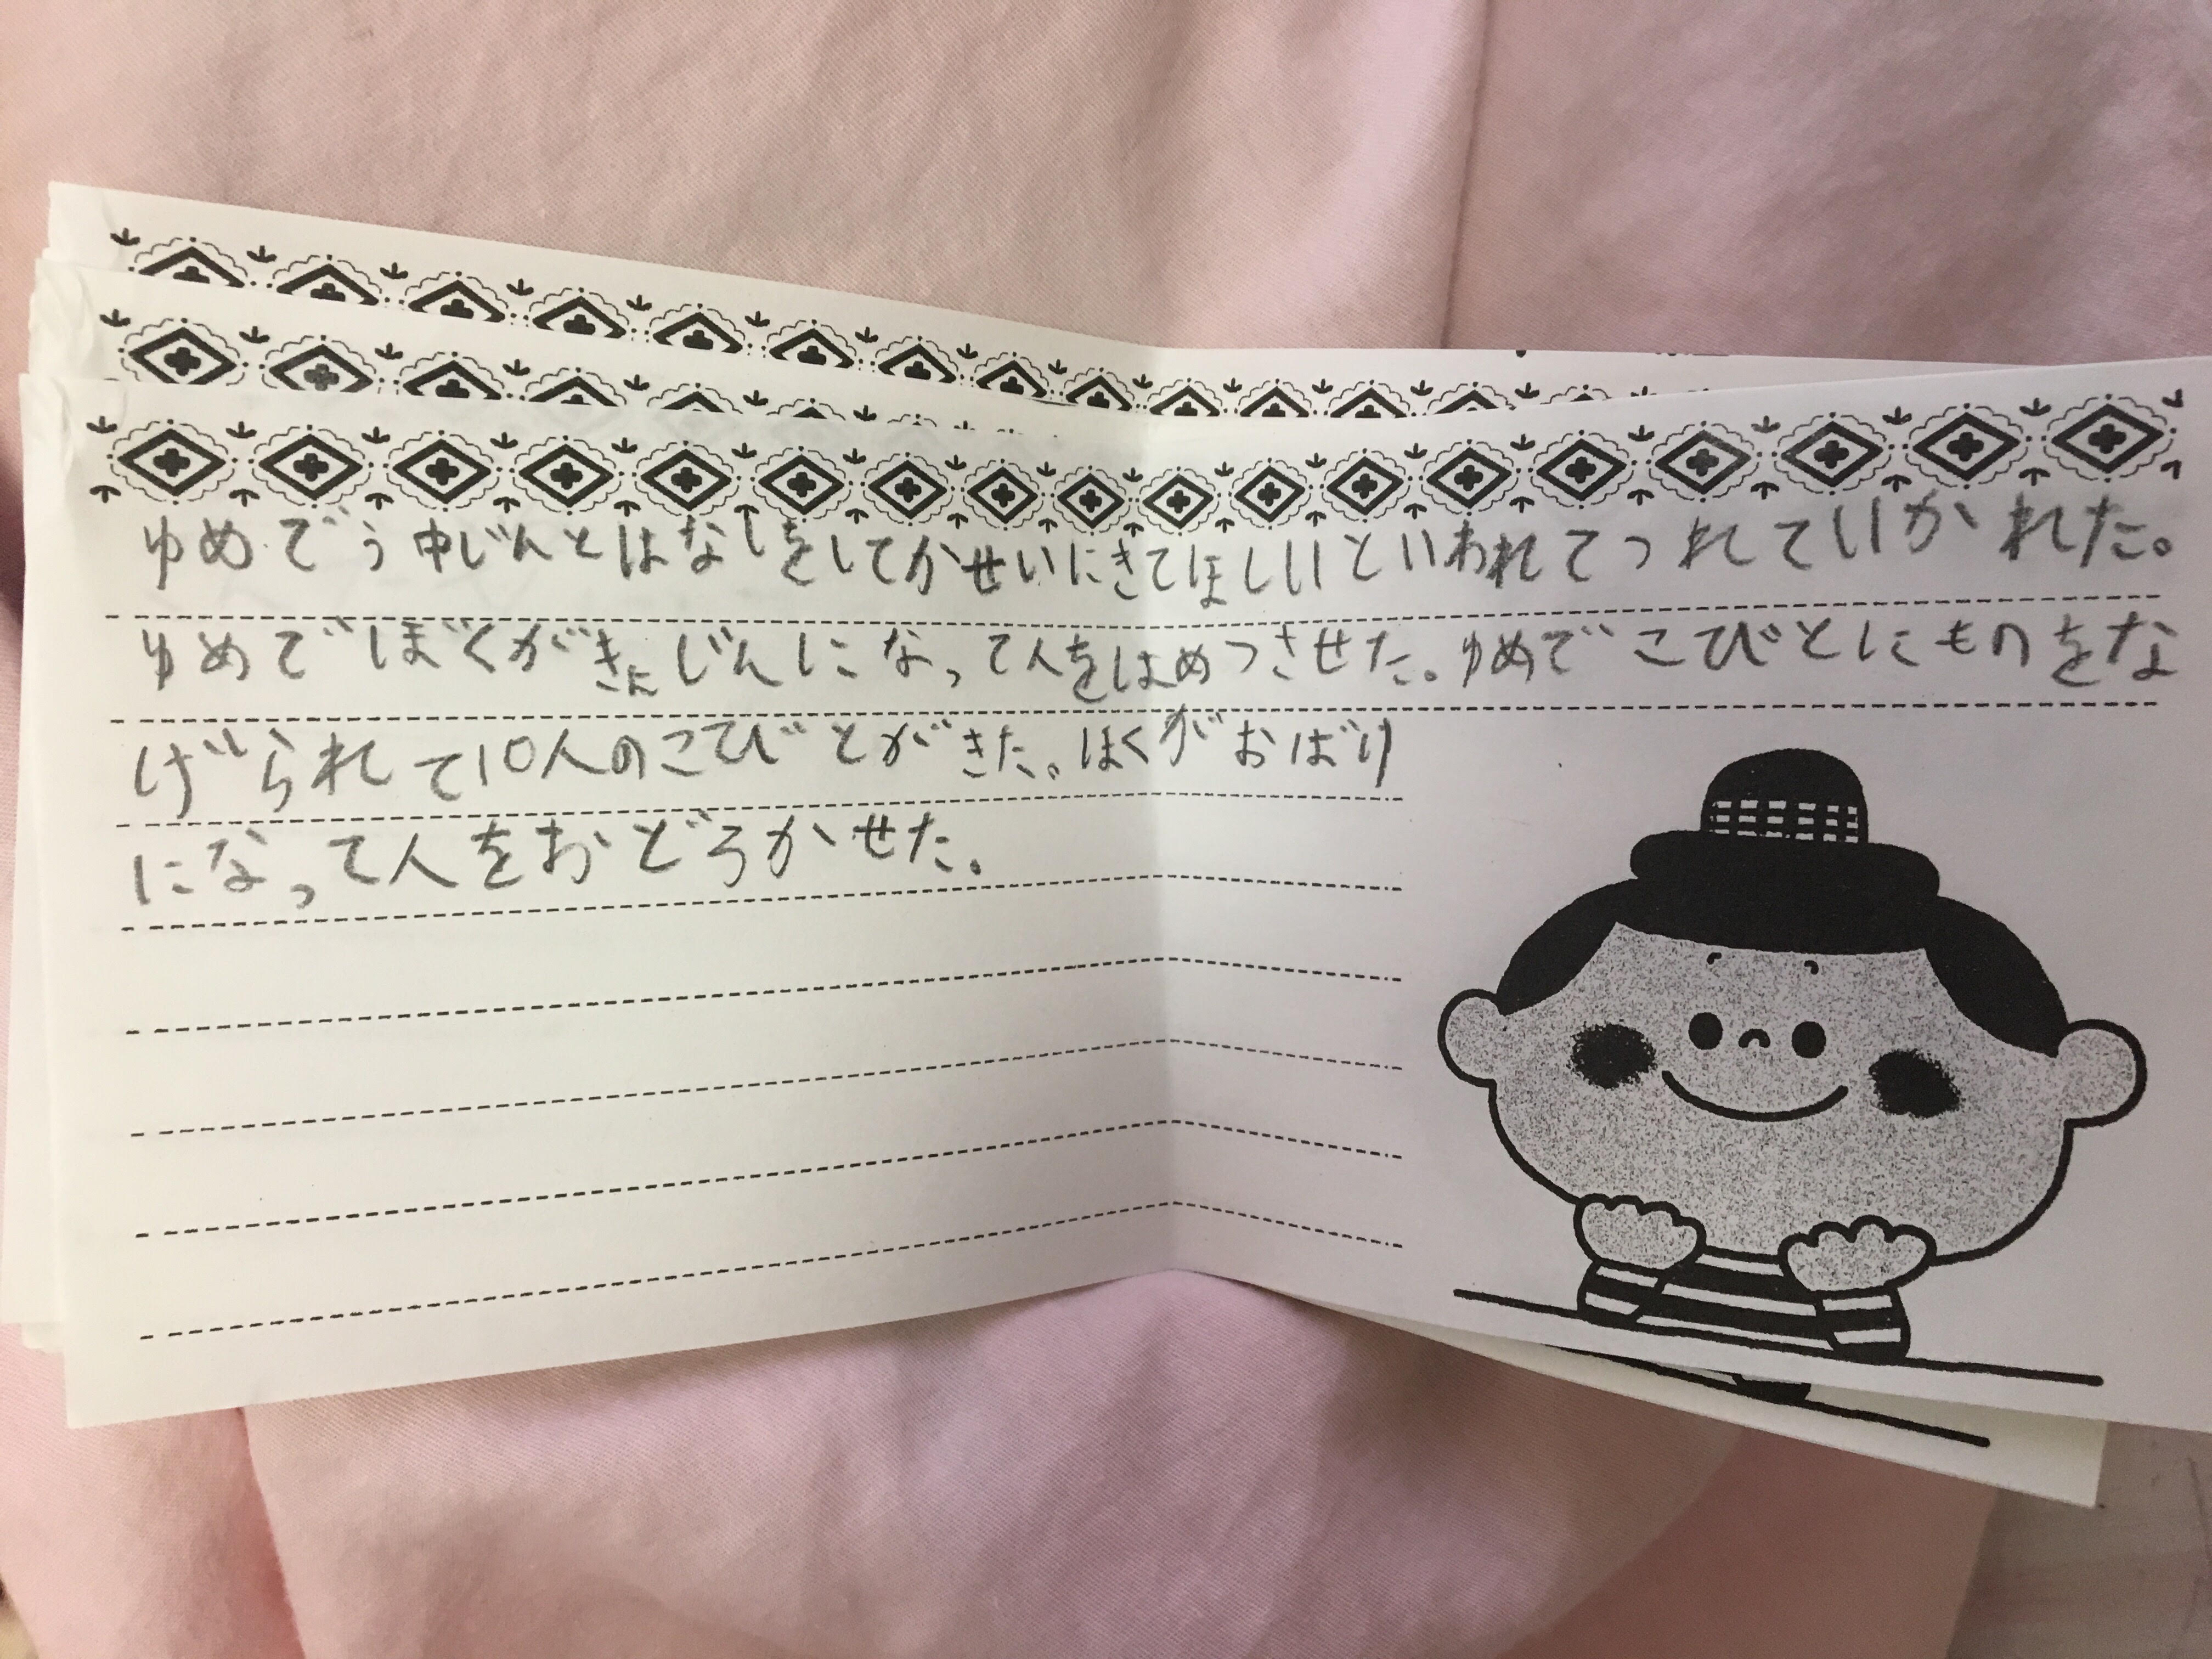 ゆめでう中じんとはなしをしてかせいにきてほしいといわれてつれていかれた。
ゆめでぼくがきょじんになって人をはめつさせた。ゆめでこびとにものをな
げられて10人のこびとがきた。ほくがおばけ
になって人をおどろかせた。